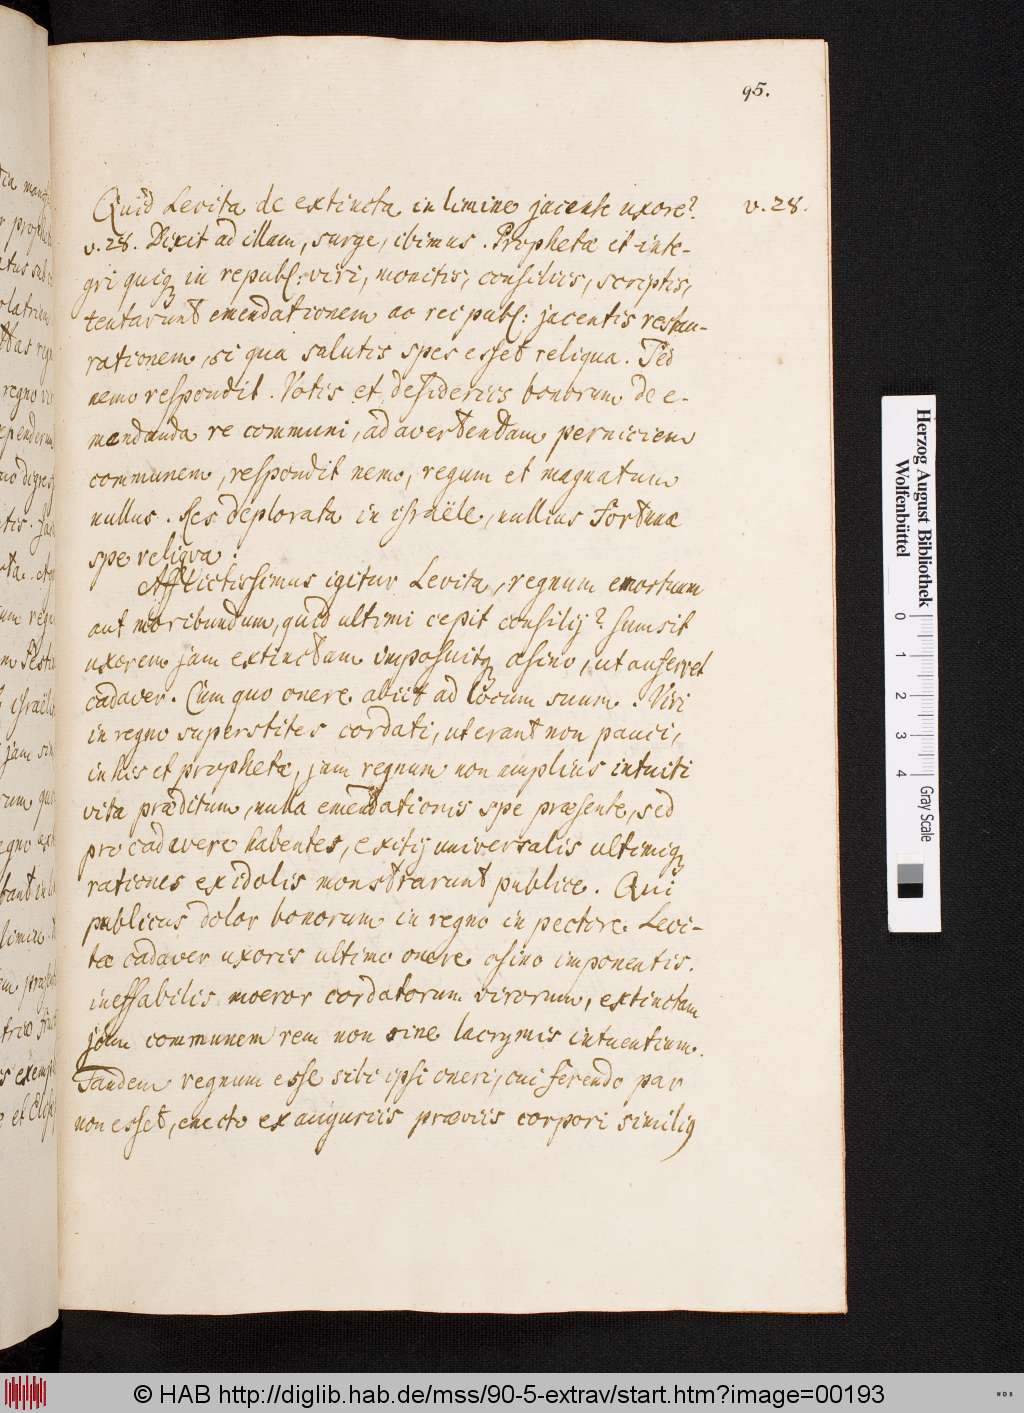 95.
Quid Levita de extincta in limine jacente uxore? v. 28.
v. 28. Dixit ad illam, surge, ibimus. Prophetæ et inte-
gri quiq; in republ: viri, monitis, consiliis, scriptis,
tentarunt emendationem ac rei publ: jacentis restau-
rationem, si qua salutis spes esset reliqua. Sed
nemo respondit. Votis et desideriis bonorum de e-
mendanda re communi, ad avertendam perniciem
communem, respondit nemo, regum et magnatum
nullus. Res deplorata in israële, nullius fortunæ
spe reliqva.
Afflictissimus igitur Levita, regnum emortuum
aut moribundum, quid ultimi cepit consilij? Sumsit
uxorem jam extinctam imposuitq; asino, ut auferret
cadaver. Cum quo onere abiit ad locum suum. Viri
in regno superstites cordati, ut erant non pauci,
in his et prophetæ, jam regnum non amplius intuiti
vita præditum, nulla emendationis spe præsente, sed
pro cadavere habentes, exitij universalis ultimiq;
rationes ex idolis monstrarunt publice. Qui
publicus dolor bonorum in regno in pectore Levi-
tæ cadaver uxoris ultimo onere asino imponentis.
ineffabilis moeror cordatorum virorum, extinctam
jam communem rem non sine lacrymis intuentium.
Tandem regnum esse sibi ipsi oneri, cui ferendo par
non esset, enecto ex anguriis præviis corpori similiq
Herzog August Bibliothek
Wolfenbüttel
0 1 2 3 4
Gray Scale
© HAB http://diglib.hab.de/mss/90-5-extrav/start.htm?image=00193